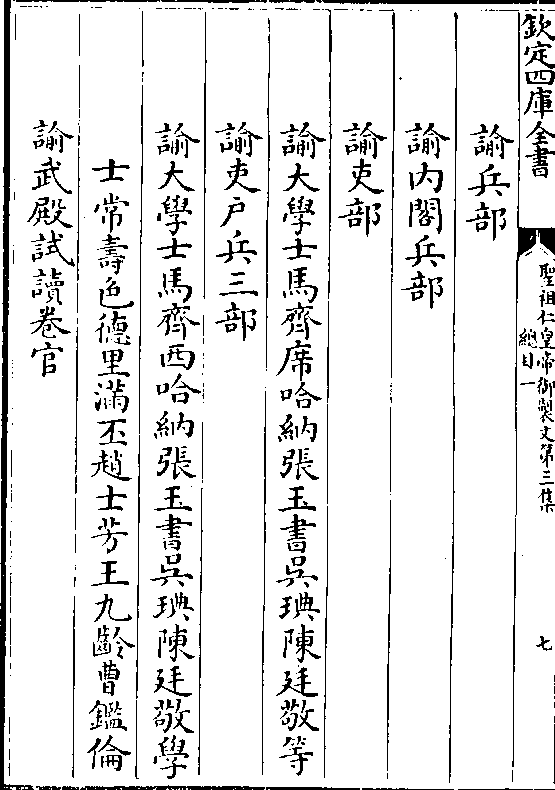 欽定四庫全書
聖祖仁皇帝御製文第三集
總目一
七
諭兵部
諭內閣兵部
諭吏部
諭大學士馬齊席哈納張玉書吳琠陳廷敬等
諭吏户兵三部
諭大學士馬齊西哈納張玉書吳琠陳廷敬學
士常壽色德里滿丕趙士芳王九齡曹鑑倫
諭武殿試讀卷官